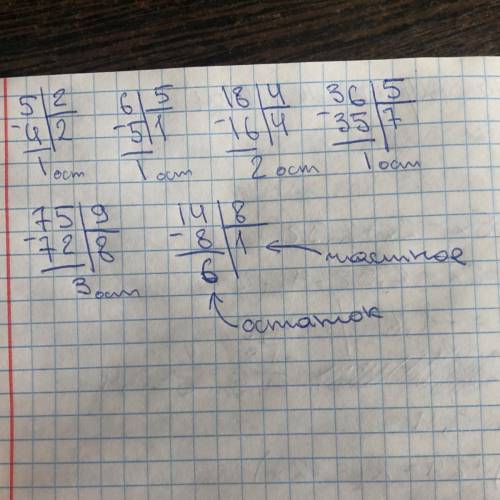 5 2 6 5 18 4 36 5
-4 2 -5 1 -16 4 -35 7
1 ост 1 ост 2 ост 1 ост
75 9 14 8
-72 8 -8 1 ← частное
3 ост 6
остаток